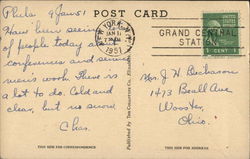 Phila 9 Jan 51
POST CARD
Have been seeing
of people today at
conferences and service
men's work. There is
a lot to do. Cold and
clear, but no snow
Chas.
NEW YORK, N.Y.
JAN 11
1951
GRAND CENTRAL
STATION
1 CENT 1
Mrs. J. H. Dickason
1473 Beall Ave
Wooster,
Ohio.
THIS SIDE FOR CORRESPONDENCE
THIS SIDE FOR ADDRESS